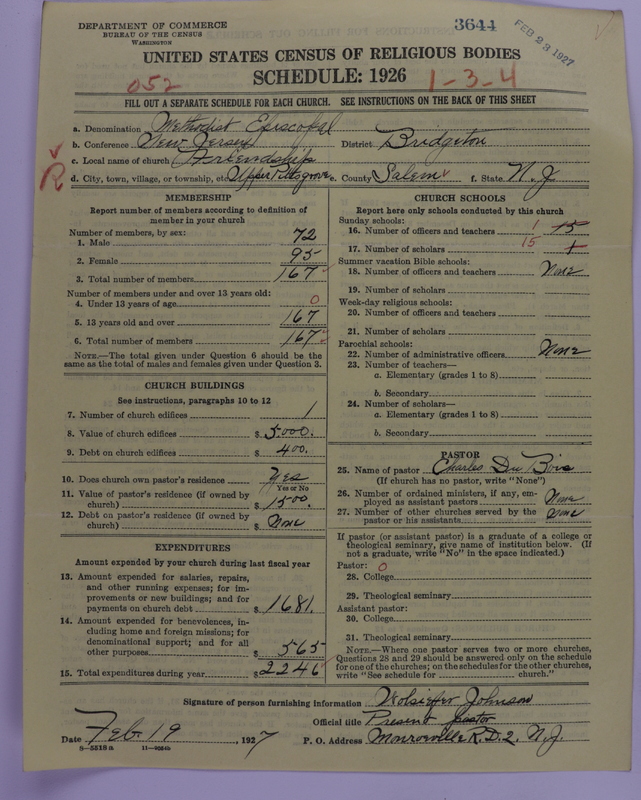 DEPARTMENT OF COMMERCE
BUREAU OF THE CENSUS
WASHINGTON
3644
FEB 23 1927
UNITED STATES CENSUS OF RELIGIOUS BODIES
SCHEDULE: 1926
052
1-3-4
FILL OUT A SEPARATE SCHEDULE FOR EACH CHURCH. SEE INSTRUCTIONS ON THE BACK OF THIS SHEET
a. Denomination Methodist Episcopal
b. Conference New Jersey District Bridgeton
c. Local name of church Friendship
R d. City, town, village, or township, etc. Upper Pittsgrove e. County Salem f. State N. J
MEMBERSHIP
Report number of members according to definition of
member in your church
Number of members, by sex:
1. Male 72
2. Female 95
3. Total number of members 167
Number of members under and over 13 years old:
4. Under 13 years of age 0
5. 13 years old and over 167
6. Total number of members 167
NOTE.—The total given under Question 6 should be the
same as the total of males and females given under Question 3.
CHURCH BUILDINGS
See instructions, paragraphs 10 to 12
7. Number of church edifices 1
8. Value of church edifices $ 5000.
9. Debt on church edifices $ 400.
10. Does church own pastor's residence Yes
Yes or No
11. Value of pastor's residence (if owned by
church) $ 1500.
12. Debt on pastor's residence (if owned by
church) $ None
EXPENDITURES
Amount expended by your church during last fiscal year
13. Amount expended for salaries, repairs,
and other running expenses; for im-
provements or new buildings; and for
payments on church debt $ 1681.
14. Amount expended for benevolences, in-
cluding home and foreign missions; for
denominational support; and for all
other purposes $ 565
15. Total expenditures during year $ 2246
CHURCH SCHOOLS
Report here only schools conducted by this church
Sunday schools:
16. Number of officers and teachers 1 15
17. Number of scholars 15 1
Summer vacation Bible schools:
18. Number of officers and teachers None
19. Number of scholars
Week-day religious schools:
20. Number of officers and teachers
21. Number of scholars
Parochial schools:
22. Number of administrative officers None
23. Number of teachers—
a. Elementary (grades 1 to 8)
b. Secondary
24. Number of scholars—
a. Elementary (grades 1 to 8)
b. Secondary
PASTOR
25. Name of pastor Charles Du Bois
(If church has no pastor, write "None")
26. Number of ordained ministers, if any, em-
ployed as assistant pastors None
27. Number of other churches served by the
pastor or his assistants None
If pastor (or assistant pastor) is a graduate of a college or
theological seminary, give name of institution below. (If
not a graduate, write "No" in the space indicated.)
Pastor: 0
28. College
29. Theological seminary
Assistant pastor:
30. College
31. Theological seminary
NOTE.—Where one pastor serves two or more churches,
Questions 28 and 29 should be answered only on the schedule
for one of the churches; on the schedules for the other churches,
write "See schedule for church."
Signature of person furnishing information Wolsieffer Johnson
Official title Present pastor
Date Feb. 19, 1927 P. O. Address Monroeville R.D.2. N.J.